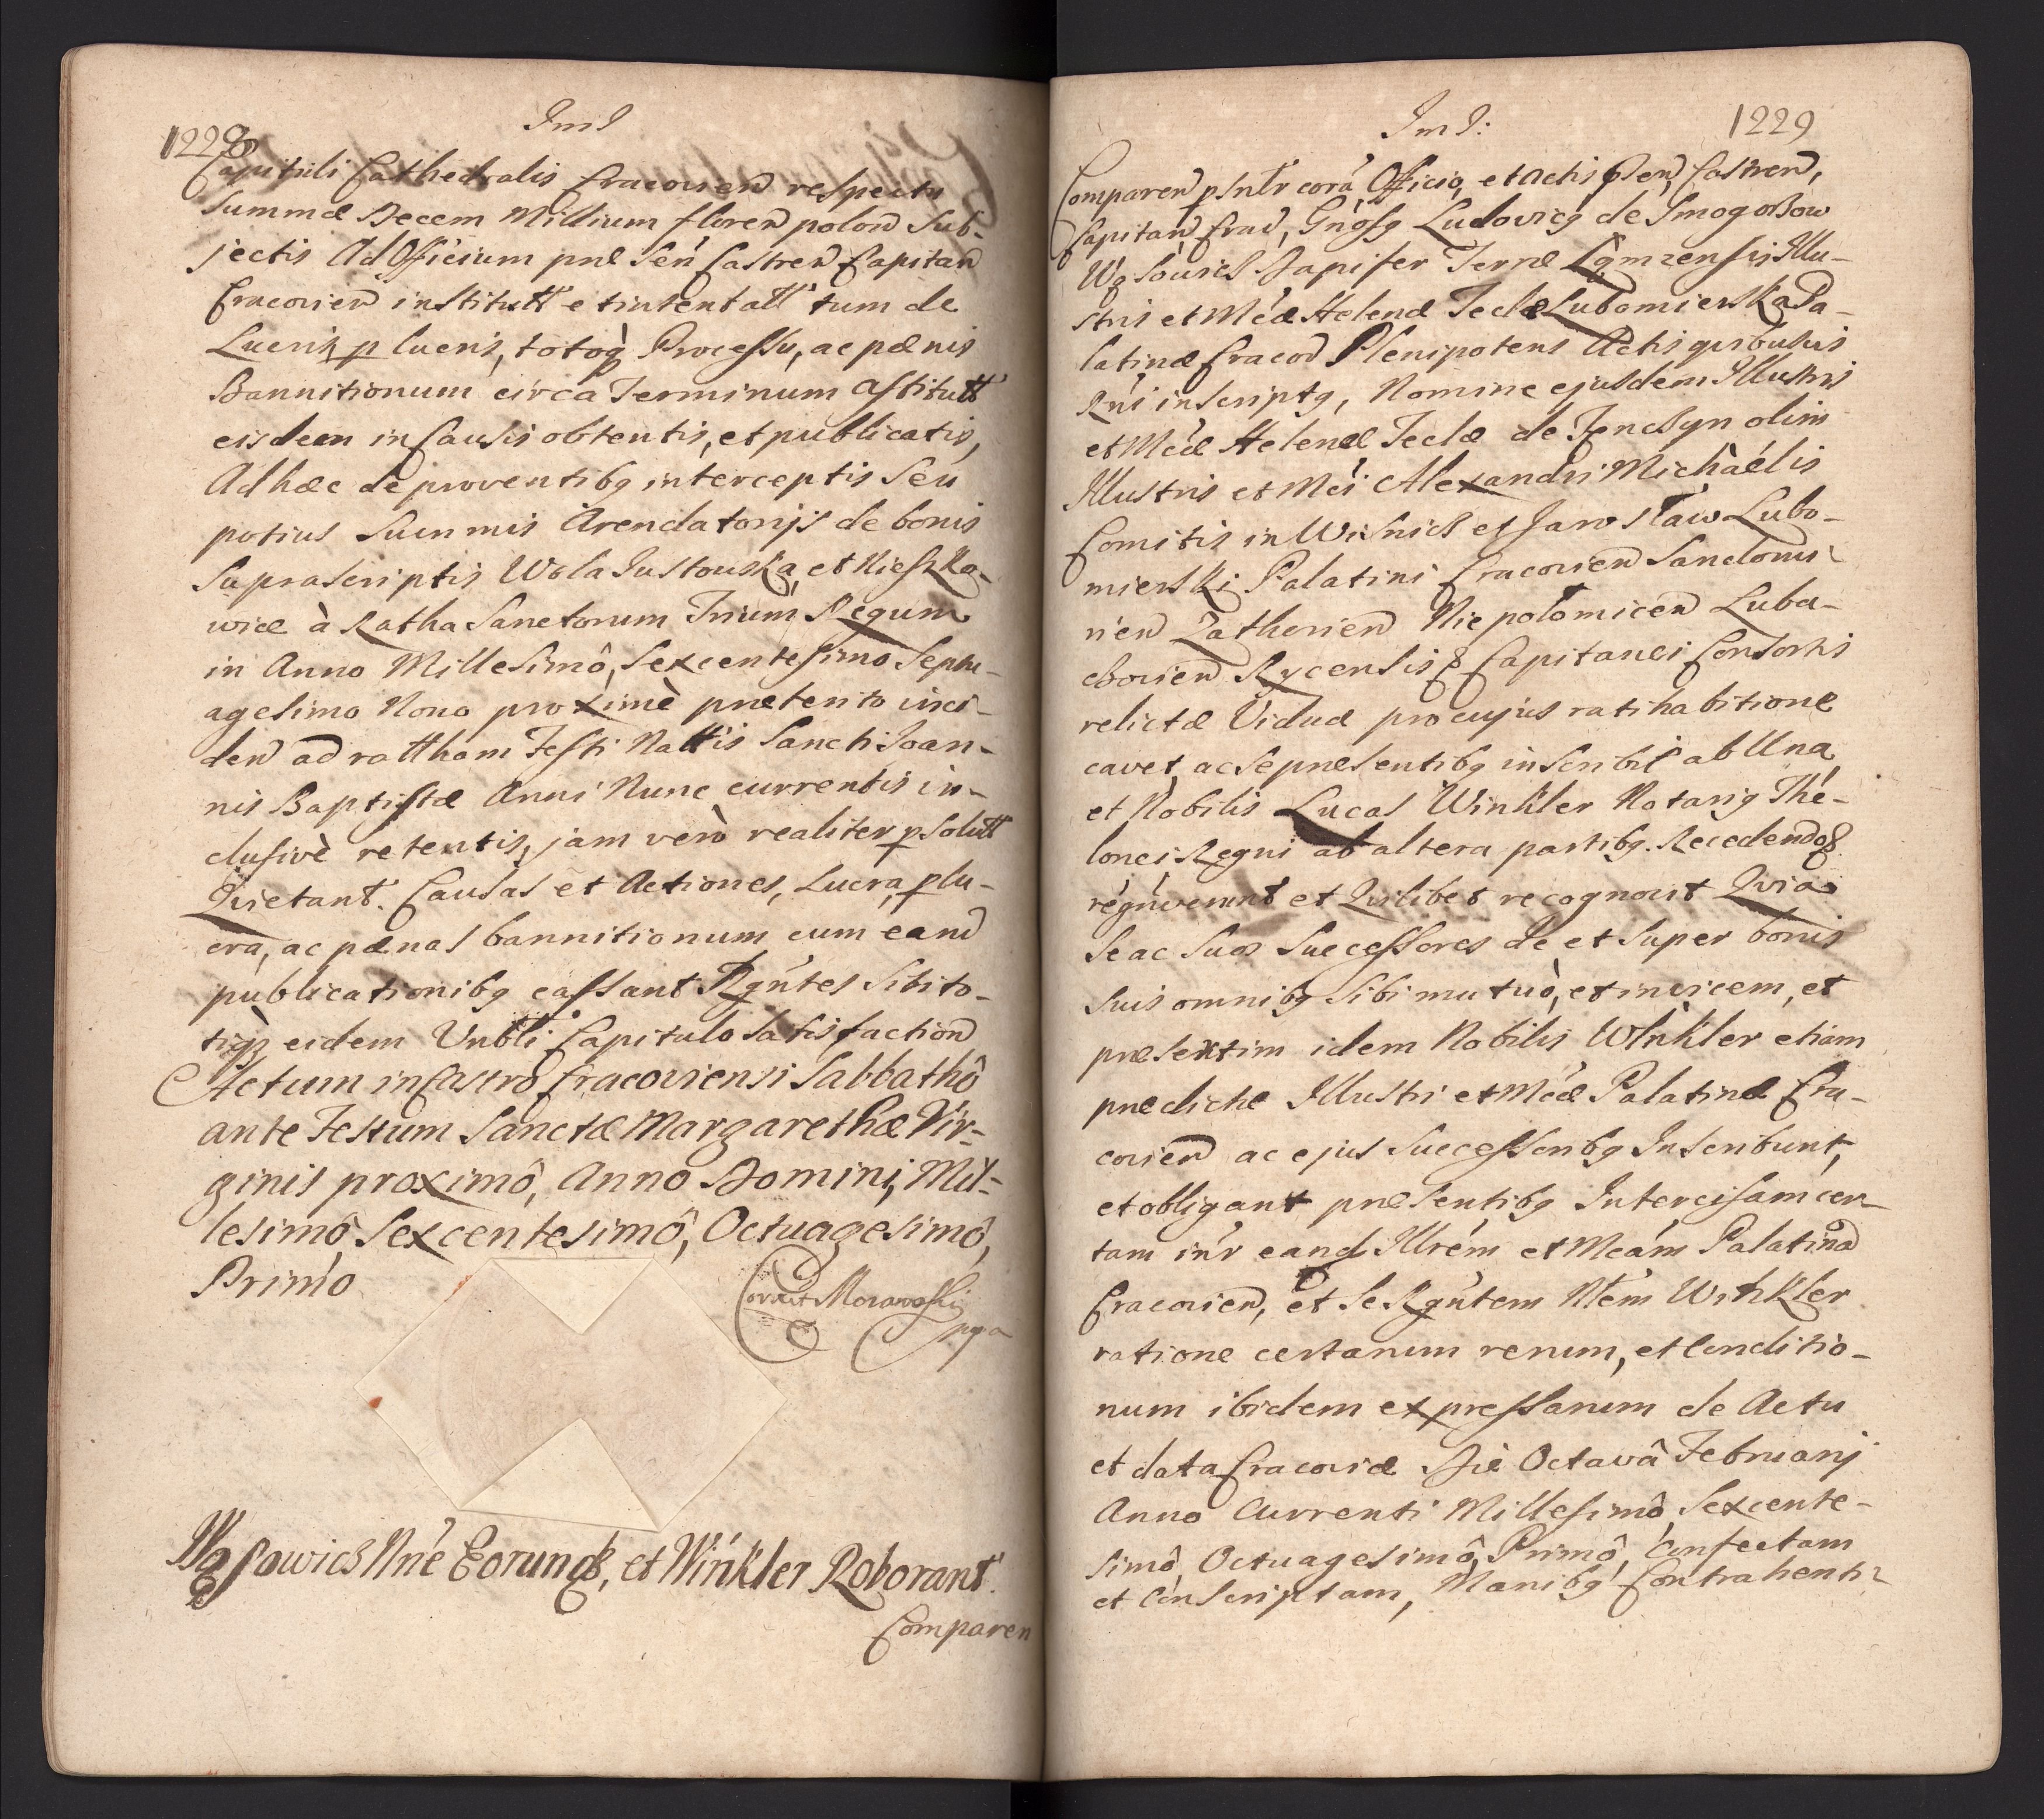 1228
Im I
Capituli Cathedralis Cracovien respectu
Summæ Decem Millium floren polon Sub-
jectis Ad Officium pnæ Sen Castren Capitan
Cracovien institutt et intentatt tum de
Lucris p lucris, totoq Processu, ac pænis
Bannitionum circa Terminum Astitutt
eisdem in Causis obtentis, et publicatis,
Ad hæc de proventibq interceptis Seu
potius Summis Arendatorijs de bonis
Supra Scriptis Wola Justouska, et Nieszko-
wice à Ratha Sanctorum Trium Regum
in Anno Millesimô, Sexcentesimo Septu-
agesimo Nono proximè præterito inci-
den ad rattham Festi Nattis Sancti Joan-
nis Baptistæ Anni Nunc currentis in-
clusivè retentis, jam verò realiter p solutt
Quietant. Causas et Actiones, Lucra, plu-
cra, ac pænas bannitionum cum eand
publicationibq cassant Rgńtes Sibi to-
tiq eidem Vnbli Capitulo Satisfaction
Actum in Castro Cracoviensi Sabbathô
ante Festum Sanctæ Margarethæ Vir-
ginis proximô, Anno Domini, Mil-
lesimô, Sexcentesimô, Octuagesimô,
Primo
Correxit Morawski
mpa
Wąsowicz Nné Eorund, et Winkler Roborant.
Comparen
Im I:
1229
Comparen psntr corá Officio, et Actis psen, Castren,
Capitan Crac, Gnósq Ludovicq de Smogorzow
Wąsowicz Dapifer Terræ Łomzensis Illu-
stris et Mćæ Helenæ Teclæ Lubomierska Pa-
latinæ Cracov Plenipotens Actis quibusvis
Rni inscriptq, Nomine ejusdem Illustris
et Mćæ Helenæ Teclæ de Tenczyn olim
Illustris et Mći Alexandri Michaélis
Comitis in Wisnicz et Jaroslaw Lubo-
mierski Palatini Cracovien Sandomi-
rien Zathorien Niepolomicen Luba-
czovien Rycensis & Capitanei Consortis
relictæ Viduæ pro cujus ratihabitione
cavet, ac se præsentibq inscribit ab Una
et Nobilis Lucas Winkler Notariq Thé-
lonei Regni ab altera partibq. Recedendo &
régnverunt et Quilibet recognovit Quia
Se ac Suos Successores de et Super bonis
Suis omnibq Sibi mutuò, et invicem, et
præsertim idem Nobilis Winkler etiam
prædictæ Illustri et Mćæ Palatinæ Cra-
covien ac ejus Successoribq Inscribunt,
et obligant præsentibq Intercisam cer-
tam intr eand Illrém et Mcám Palatinã
Cracovien, et Se Rgńtem Nlém Winkler
ratione certarum rerum, et Conditio-
num ibidem expressarum de Actu
et data Cracoviæ Die Octavâ Februarij
Anno Currenti Millesimô Sexcente-
simô, Octuagesimô, Primô, Confectam
et Conscriptam, Manibq Contrahenti